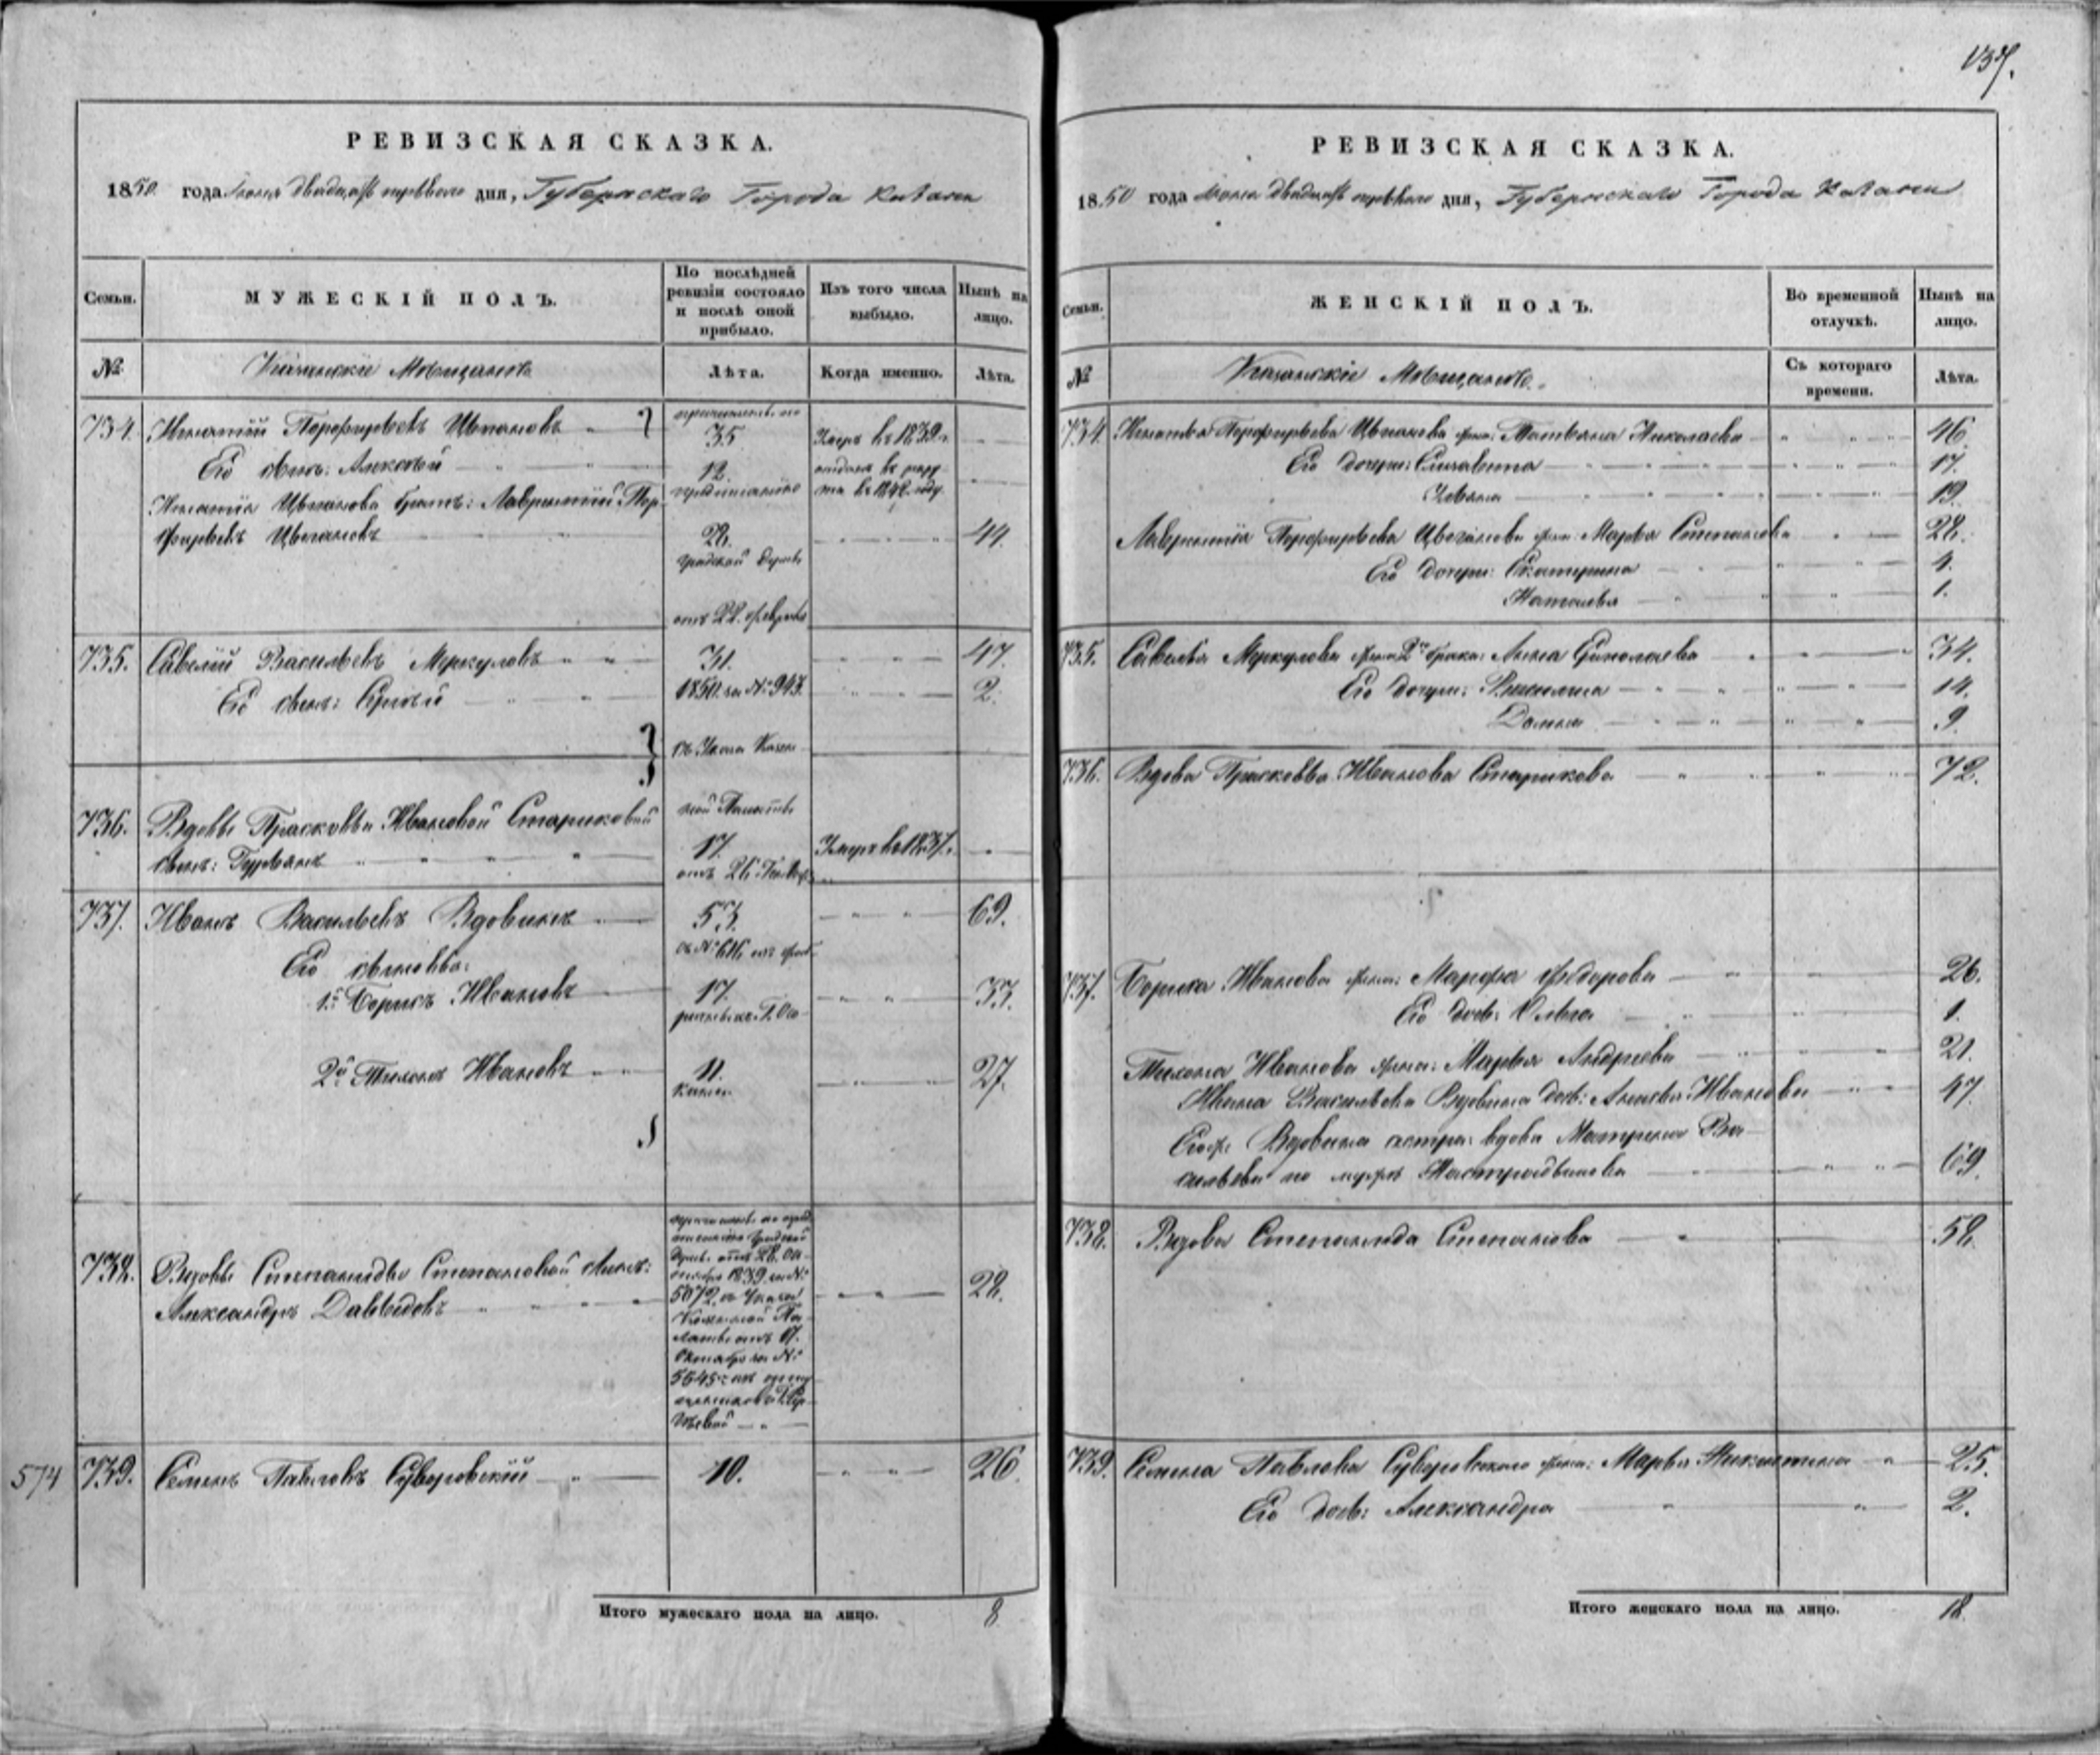 РЕВИЗСКАЯ СКАЗКА.
1850 года Июня двадцать перваго дня, Губернскаго Города Казани
Семьи.
МУЖЕСКІЙ ПОЛЪ.
По послѣдней ревизіи состояло и послѣ оной прибыло.
Изъ того числа выбыло.
Нынѣ на лицо.
№
Казанскіе Мѣщане
Лѣта.
Когда именно.
Лѣта.
734. Игнатій Порфирьевъ Цыгановъ 35 Умеръ въ 1839
Его сынъ: Алексѣй 12. отданъ въ рекруты въ 184 году
Игнатія Цыганова братъ: Лаврентій Пор-
фирьевъ Цыгановъ 28. 44.
Градской Думы
отъ 22. февраля
735. Савелій Васильевъ Меркуловъ 31. 47.
Его сынъ: Сергѣй 1850. за № 943. 2.
съ Указа Казен-
ной Палаты
736. Вдовы Прасковьи Ивановой Стариковой
сынъ: 17. Умеръ въ 1837.
737. Иванъ Васильевъ Вдовинъ 53. 69.
за № 616
Его сыновья:
1й Борисъ Ивановъ 17. 33.
2й Тихонъ Ивановъ 11. 27.
738. Вдовы Степаниды Степановой сынъ:
Александръ Давыдовъ 28.
Градской
Думы отъ 28. Се-
нтября 1839. за №
5072. и Указа
Казенной Па-
латы отъ 17.
Октября за №
5545
574 739. Семенъ Павловъ Суворовскій 10. 26.
Итого мужескаго пола на лицо. 8
137.
РЕВИЗСКАЯ СКАЗКА.
1850 года Июня двадцать перваго дня, Губернскаго Города Казани
Семьи.
ЖЕНСКІЙ ПОЛЪ.
Во временной отлучкѣ.
Нынѣ на лицо.
№
Казанскіе Мѣщане.
Съ котораго времени.
Лѣта.
734. Игнатья Порфирьева Цыганова жена: Татьяна Николаева 46.
Его дочери: Елизавета 17.
19.
Лаврентія Порфирьева Цыганова жена: Марья Степанова 28.
Его дочери: Екатерина 4.
Наталья 1.
735. Савелья Меркулова жена 2го брака: Анна 34.
Его дочери: 14.
Домна 9.
736. Вдова Прасковья Иванова Старикова 72.
737. Бориса Иванова жена: Марфа Федорова 26.
Его дочь: Ольга 1.
Тихона Иванова жена: Марья Андреева 21.
Ивана Васильева Вдовина дочь: Иванова 47.
Его ж Вдовина сестра: вдова Матрена Ва-
сильева по мужѣ 69.
738. Вдова Степанида Степанова 58.
739. Семена Павлова Суворовскаго жена: Марья Никитина 25.
Его дочь: Александра 2.
Итого женскаго пола на лицо. 18.